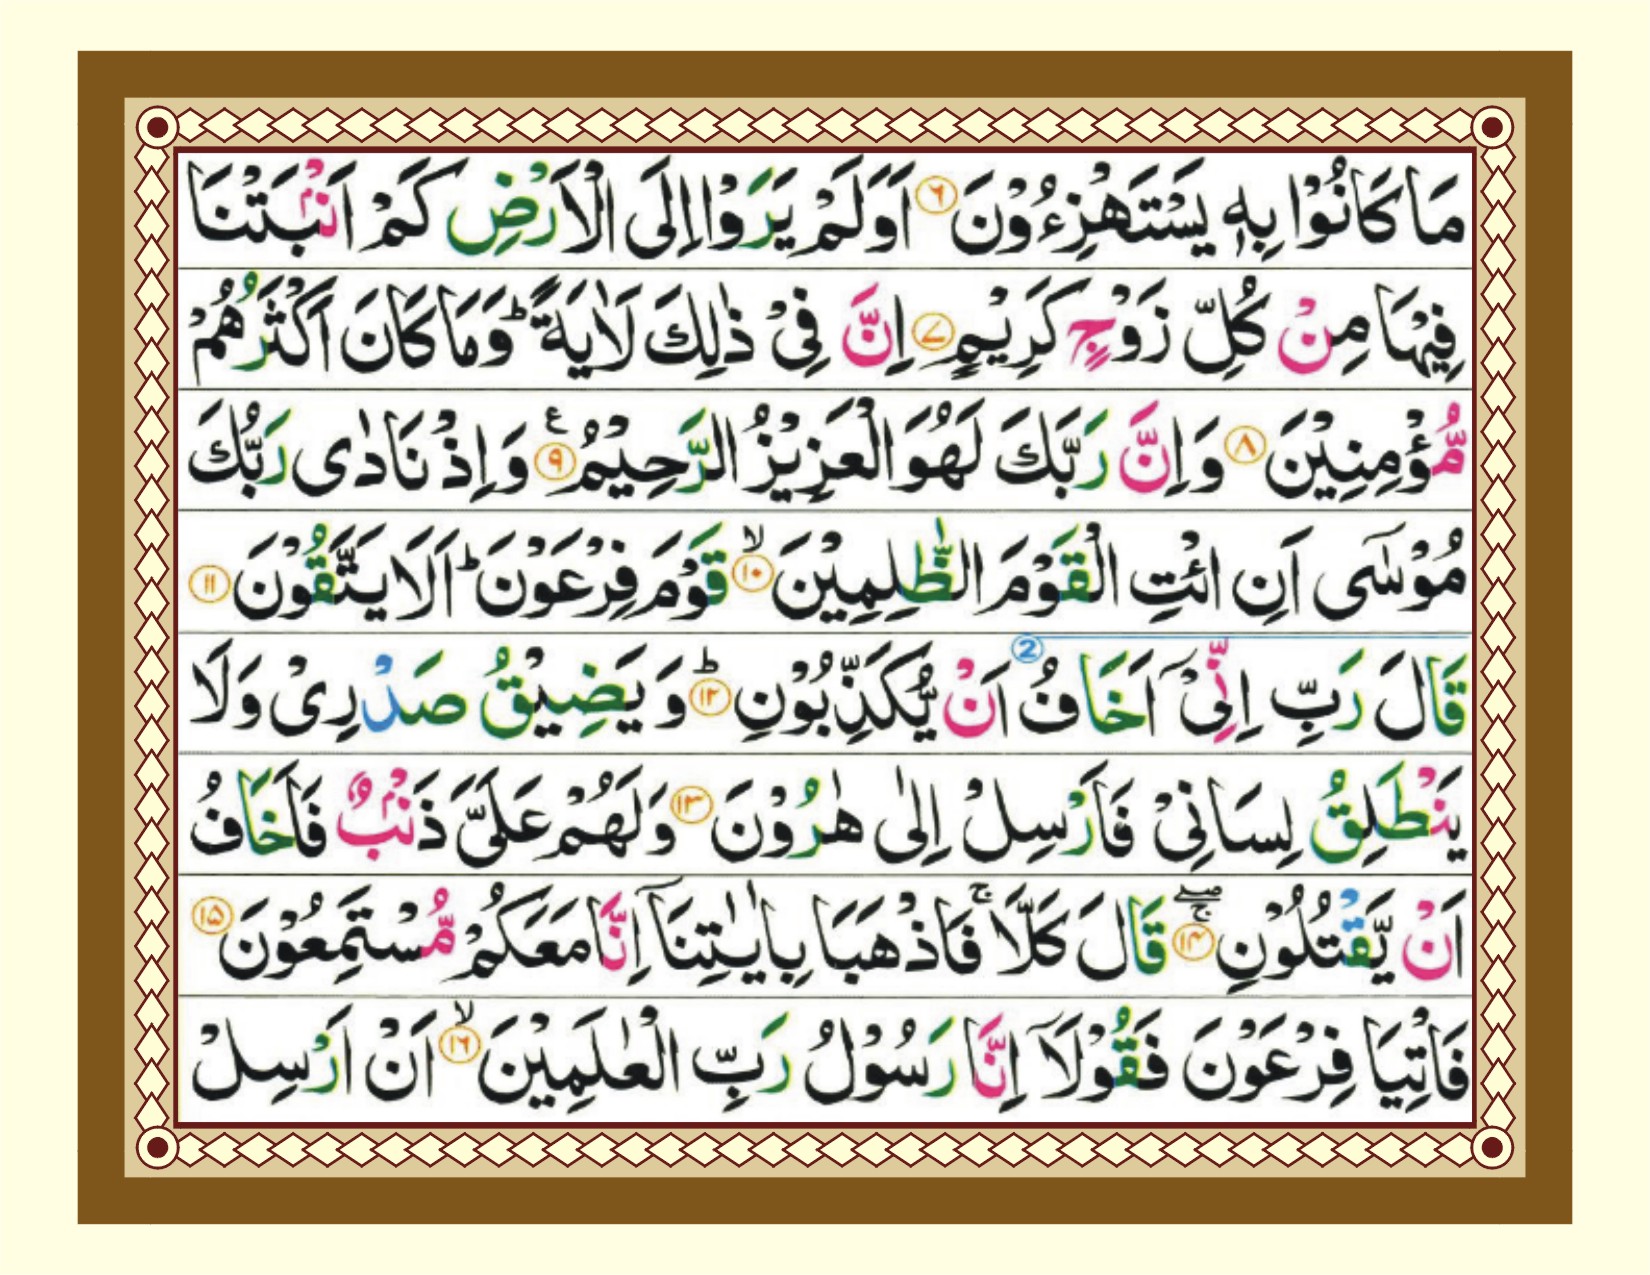 مَا كَانُوْا بِهٖ يَسْتَهْزِءُوْنَ ۝۶ اَوَلَمْ يَرَوْا اِلَى الْاَرْضِ كَمْ اَنْۢبَتْنَا
فِيْهَا مِنْ كُلِّ زَوْجٍ كَرِيْمٍ ۝۷ اِنَّ فِيْ ذٰلِكَ لَاٰيَةً ؕ وَمَا كَانَ اَكْثَرُهُمْ
مُّؤْمِنِيْنَ ۝۸ وَاِنَّ رَبَّكَ لَهُوَ الْعَزِيْزُ الرَّحِيْمُ ۝۹ ع وَاِذْ نَادٰى رَبُّكَ
مُوْسٰٓى اَنِ ائْتِ الْقَوْمَ الظّٰلِمِيْنَ ۝۱۰ ۙ قَوْمَ فِرْعَوْنَ ؕ اَلَا يَتَّقُوْنَ ۝۱۱
قَالَ رَبِّ اِنِّيْٓ اَخَافُ 2 اَنْ يُّكَذِّبُوْنِ ۝۱۲ ؕ وَيَضِيْقُ صَدْرِيْ وَلَا
يَنْطَلِقُ لِسَانِيْ فَاَرْسِلْ اِلٰى هٰرُوْنَ ۝۱۳ وَلَهُمْ عَلَيَّ ذَنْۢبٌ فَاَخَافُ
اَنْ يَّقْتُلُوْنِ ۝۱۴ ۚۖ قَالَ كَلَّا ۚ فَاذْهَبَا بِاٰيٰتِنَآ اِنَّا مَعَكُمْ مُّسْتَمِعُوْنَ ۝۱۵
فَاْتِيَا فِرْعَوْنَ فَقُوْلَآ اِنَّا رَسُوْلُ رَبِّ الْعٰلَمِيْنَ ۝۱۶ ۙ اَنْ اَرْسِلْ